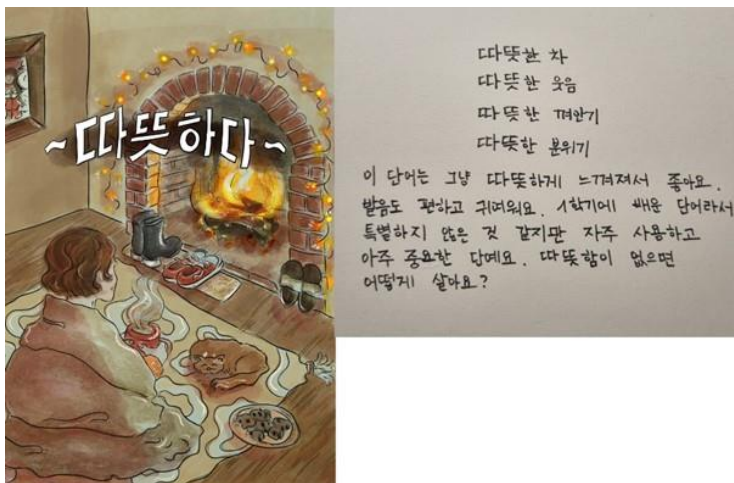 ~따뜻하다~
따뜻한 차
따뜻한 웃음
따뜻한 껴안기
따뜻한 분위기
이 단어는 그냥 따뜻하게 느껴져서 좋아요.
발음도 편하고 귀여워요. 1학기에 배운 단어라서
특별하지 않은 것 같지만 자주 사용하고
아주 중요한 단예요. 따뜻함이 없으면
어떻게 살아요?